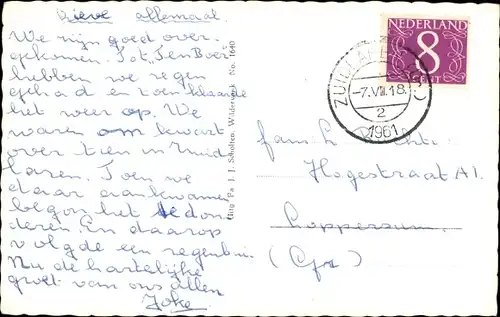 Lieve allemaal.
We zijn goed over-
gekomen. Tot "Ten Boer"
hebben we regen
gehad en toen klaarde
het weer op. We
waren om kwart
over tien in Zuid
laren. Toen we
daar aankwamen
begon het te don
deren En daarop
volgde een regenbui
Nu de hartelijke
groet van ons allen
Joke
Uitg. Fa J. J. Scholten, Wildervank No. 1640
NEDERLAND
8
CENT
-7.VII.18
2
1961
fam.
Hogestraat A1.
Loppersum.
(Gr.)